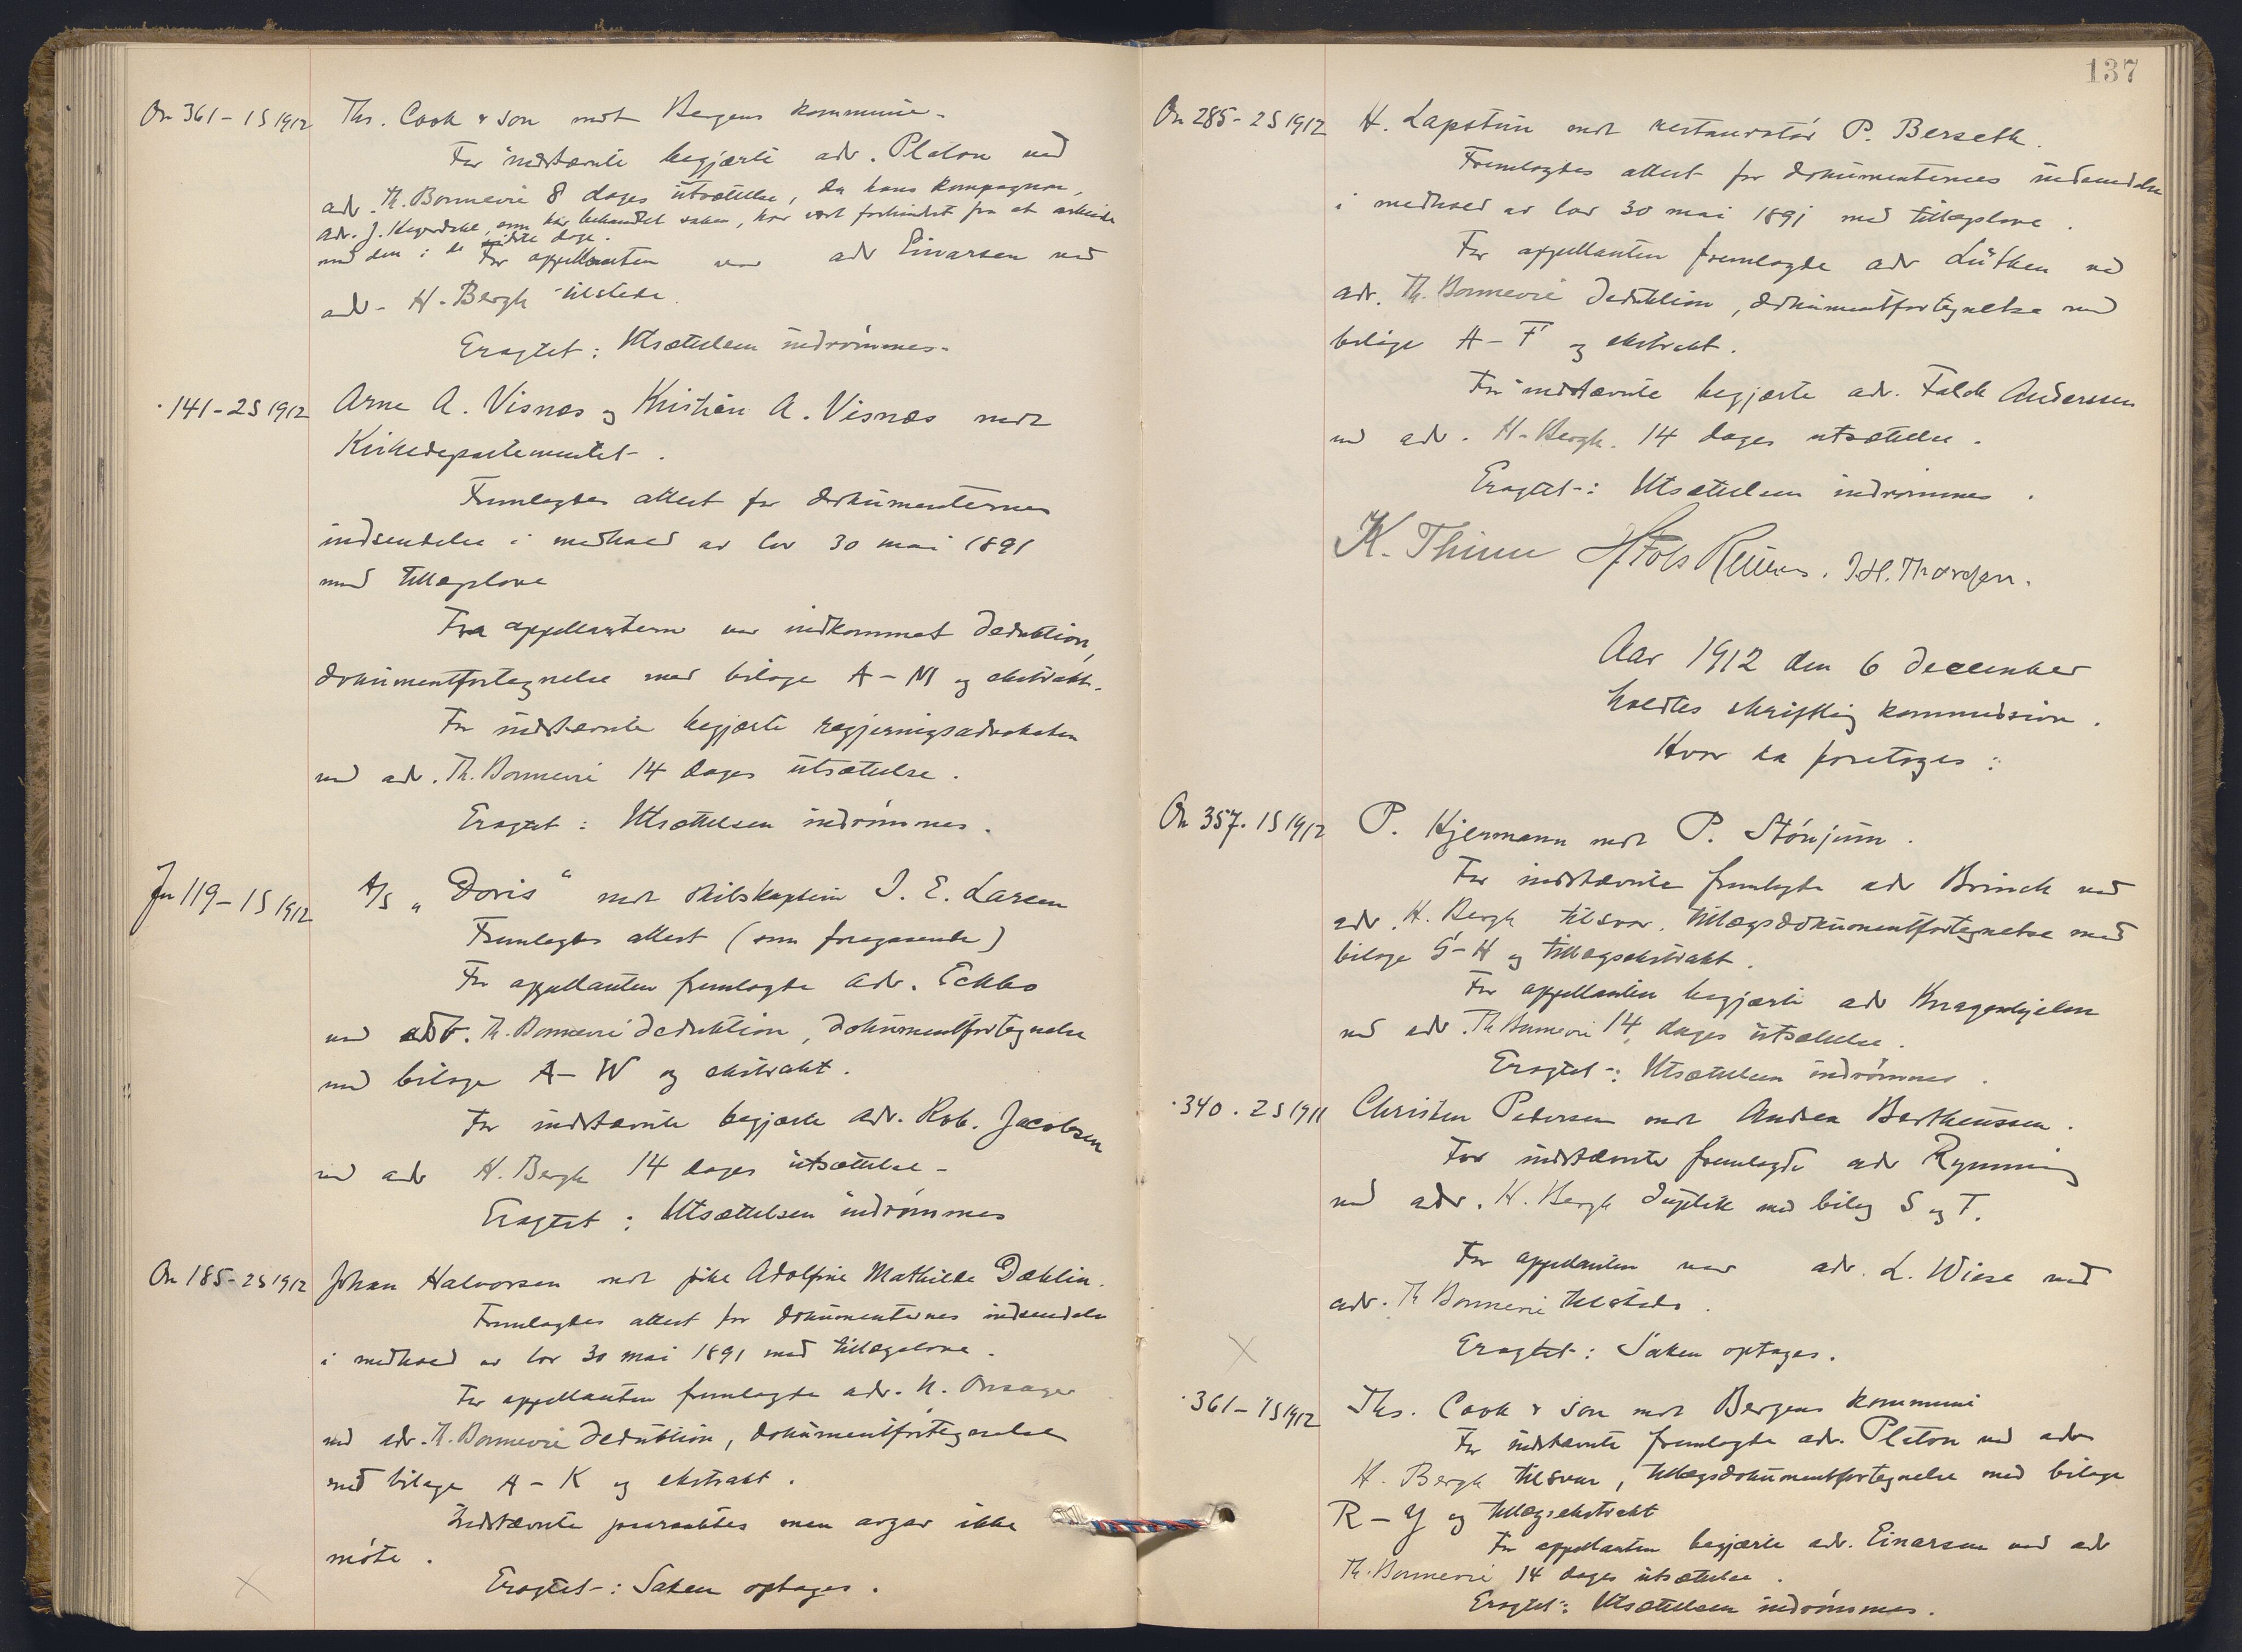 On 361 – 1S 1912
Ths. Cook & Son mot Bergens kommune.
For indstævnte begjærte adv. Platou ved
adv. Th. Bonnevie 8 dages utsættelse, da hans kompagnon,
adv. J. som har behandlet saken, har vært forhindret fra at arbeide
med den i de sidste dage.
For appellanten var adv Einarsen ved
adv. H. Bergh tilstede.
Eragtet: Utsættelsen indrømmes.
" 141 – 2S 1912
Arne A. Visnæs og Kristian A. Visnæs mot
Kirkedepartementet.
Fremlagdes attest for dokumenternes
indsendelse i medhold av lov 30 mai 1891
med tillægslove
Fra appellantern var indkommet deduktion,
dokumentfortegnelse med bilage A – M og ekstrakt.
For indstævnte begjærte regjeringsadvokaten
ved adv. Th. Bonnevie 14 dages utsættelse.
Eragtet: Utsættelsen indrømmes.
Fn 119 – 1S 1912
A/S „Doris“ mot skibskaptein J. E. Larsen
Fremlagdes attest (som foregaaende)
For appellanten fremlagde adv. Eckbo
ved adv. Th. Bonnevie deduktion, dokumentfortegnelse
med bilage A – W og ekstrakt.
For indstævnte begjærte adv. Rob. Jacobsen
ved adv H. Bergh 14 dages utsættelse.
Eragtet: Utsættelsen indrømmes
On 185 – 2S 1912
Johan Halvorsen mot pike Adolfine Mathilde Dæhlin.
Fremlagdes attest for dokumenternes indsendelse
i medhold av lov 30 mai 1891 med tillægslove.
For appellanten fremlagde adv. N. Onsager
ved adv. Th. Bonnevie deduktion, dokumentfortegnelse
med bilage A – K og ekstrakt.
Indstævnte paaraabtes men avgav ikke
møte.
X
Eragtet: Saken optages.
137
On 285 – 2S 1912
H. Lapstun mot restauratør P. Berseth.
Fremlagdes attest for dokumenternes indsendelse
i medhold av lov 30 mai 1891 med tillægslove.
For appellanten fremlagde adv Lütken ved
adv. Th. Bonnevie deduktion, dokumentfortegnelse med
bilage A – F og ekstrakt.
For indstævnte begjærte adv. Falck Anderssen
ved adv. H. Bergh. 14 dages utsættelse.
Eragtet: Utsættelsen indrømmes.
K. Thinn
Aar 1912 den 6 december
holdtes skriftlig kommission.
Hvor da foretoges:
On 357. 1S 1912
P. Hjermann mot P. Stønjum.
For indstævnte fremlagde adv Brinch ved
adv. H. Bergh tilsvar, tillægsdokumentfortegnelse med
bilage G – H og tillægsekstrakt.
For appellanten begjærte adv Kragenhjelm
ved adv. Th Bonnevie 14 dages utsættelse.
Eragtet: Utsættelsen indrømmes.
" 340. 2S 1911
Christen Pedersen mot Andrea Bertheussen.
For indstævnte fremlagde adv Rynning
ved adv. H. Bergh duplik med bilag S og T.
For appellanten var adv. L. Wiese ved
adv. Th Bonnevie tilstede.
X
Eragtet: Saken optages.
" 361 – 1S 1912
Ths. Cook & Son mot Bergens kommune
For indstævnte fremlagde adv. Platou ved adv
H. Bergh tilsvar, tillægsdokumentfortegnelse med bilage
R – Y og tillægsekstrakt
For appellanten begjærte adv. Einarsen ved adv
Th. Bonnevie 14 dages utsættelse.
Eragtet: Utsættelsen indrømmes.